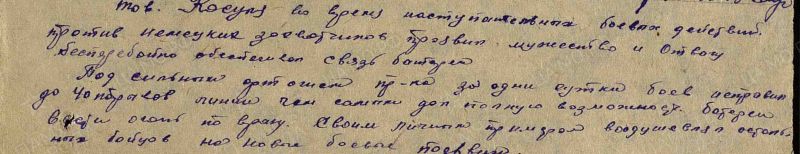 тов. Косуля во время наступательных боевых действий
против немецких захватчиков проявил мужество и отвагу
бесперебойно обеспечил связь батареи
Под сильным артогнем пр-ка за одни сутки боев исправил
до 40 порывов линии чем самым дал полную возможность батареи
вести огонь по врагу. Своим личным примером воодушевлял осталь-
ных бойцов на новые боевые подвиги.